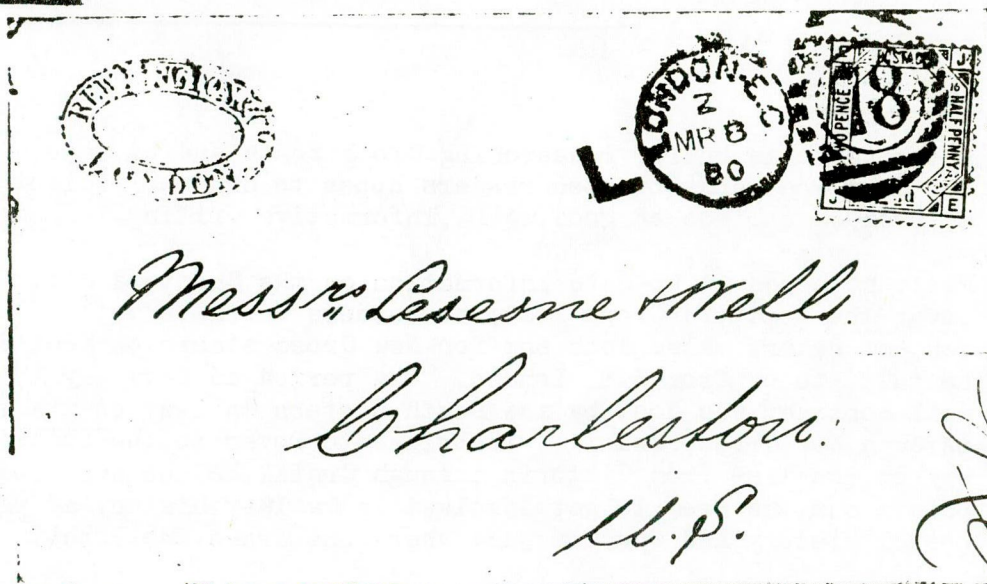 LONDON
L
LONDON·E.C
Z
MR 8
80
8
TWO PENCE
HALF PENNY
J
J
E
Messrs Lesesne & Wells.
Charleston.
U.S.